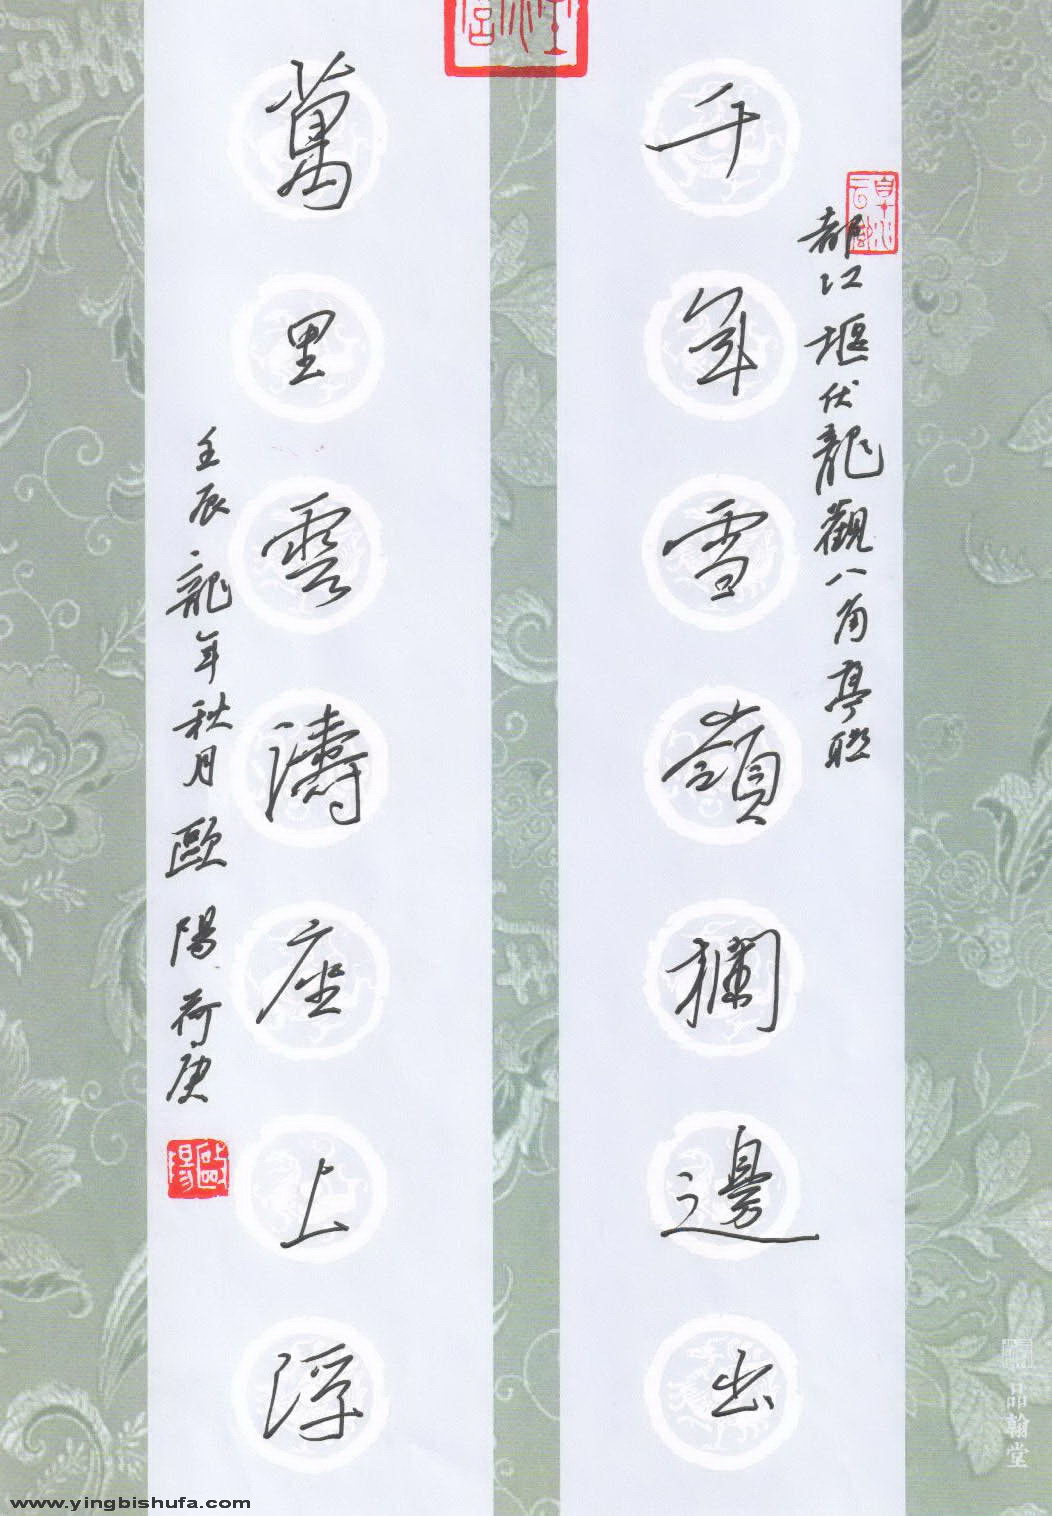 都江堰伏龍觀八角亭聯
千年雪嶺欄邊出
萬里雲濤座上浮
壬辰龍年秋月歐陽荷庚
歐陽
品翰堂
www.yingbishufa.com